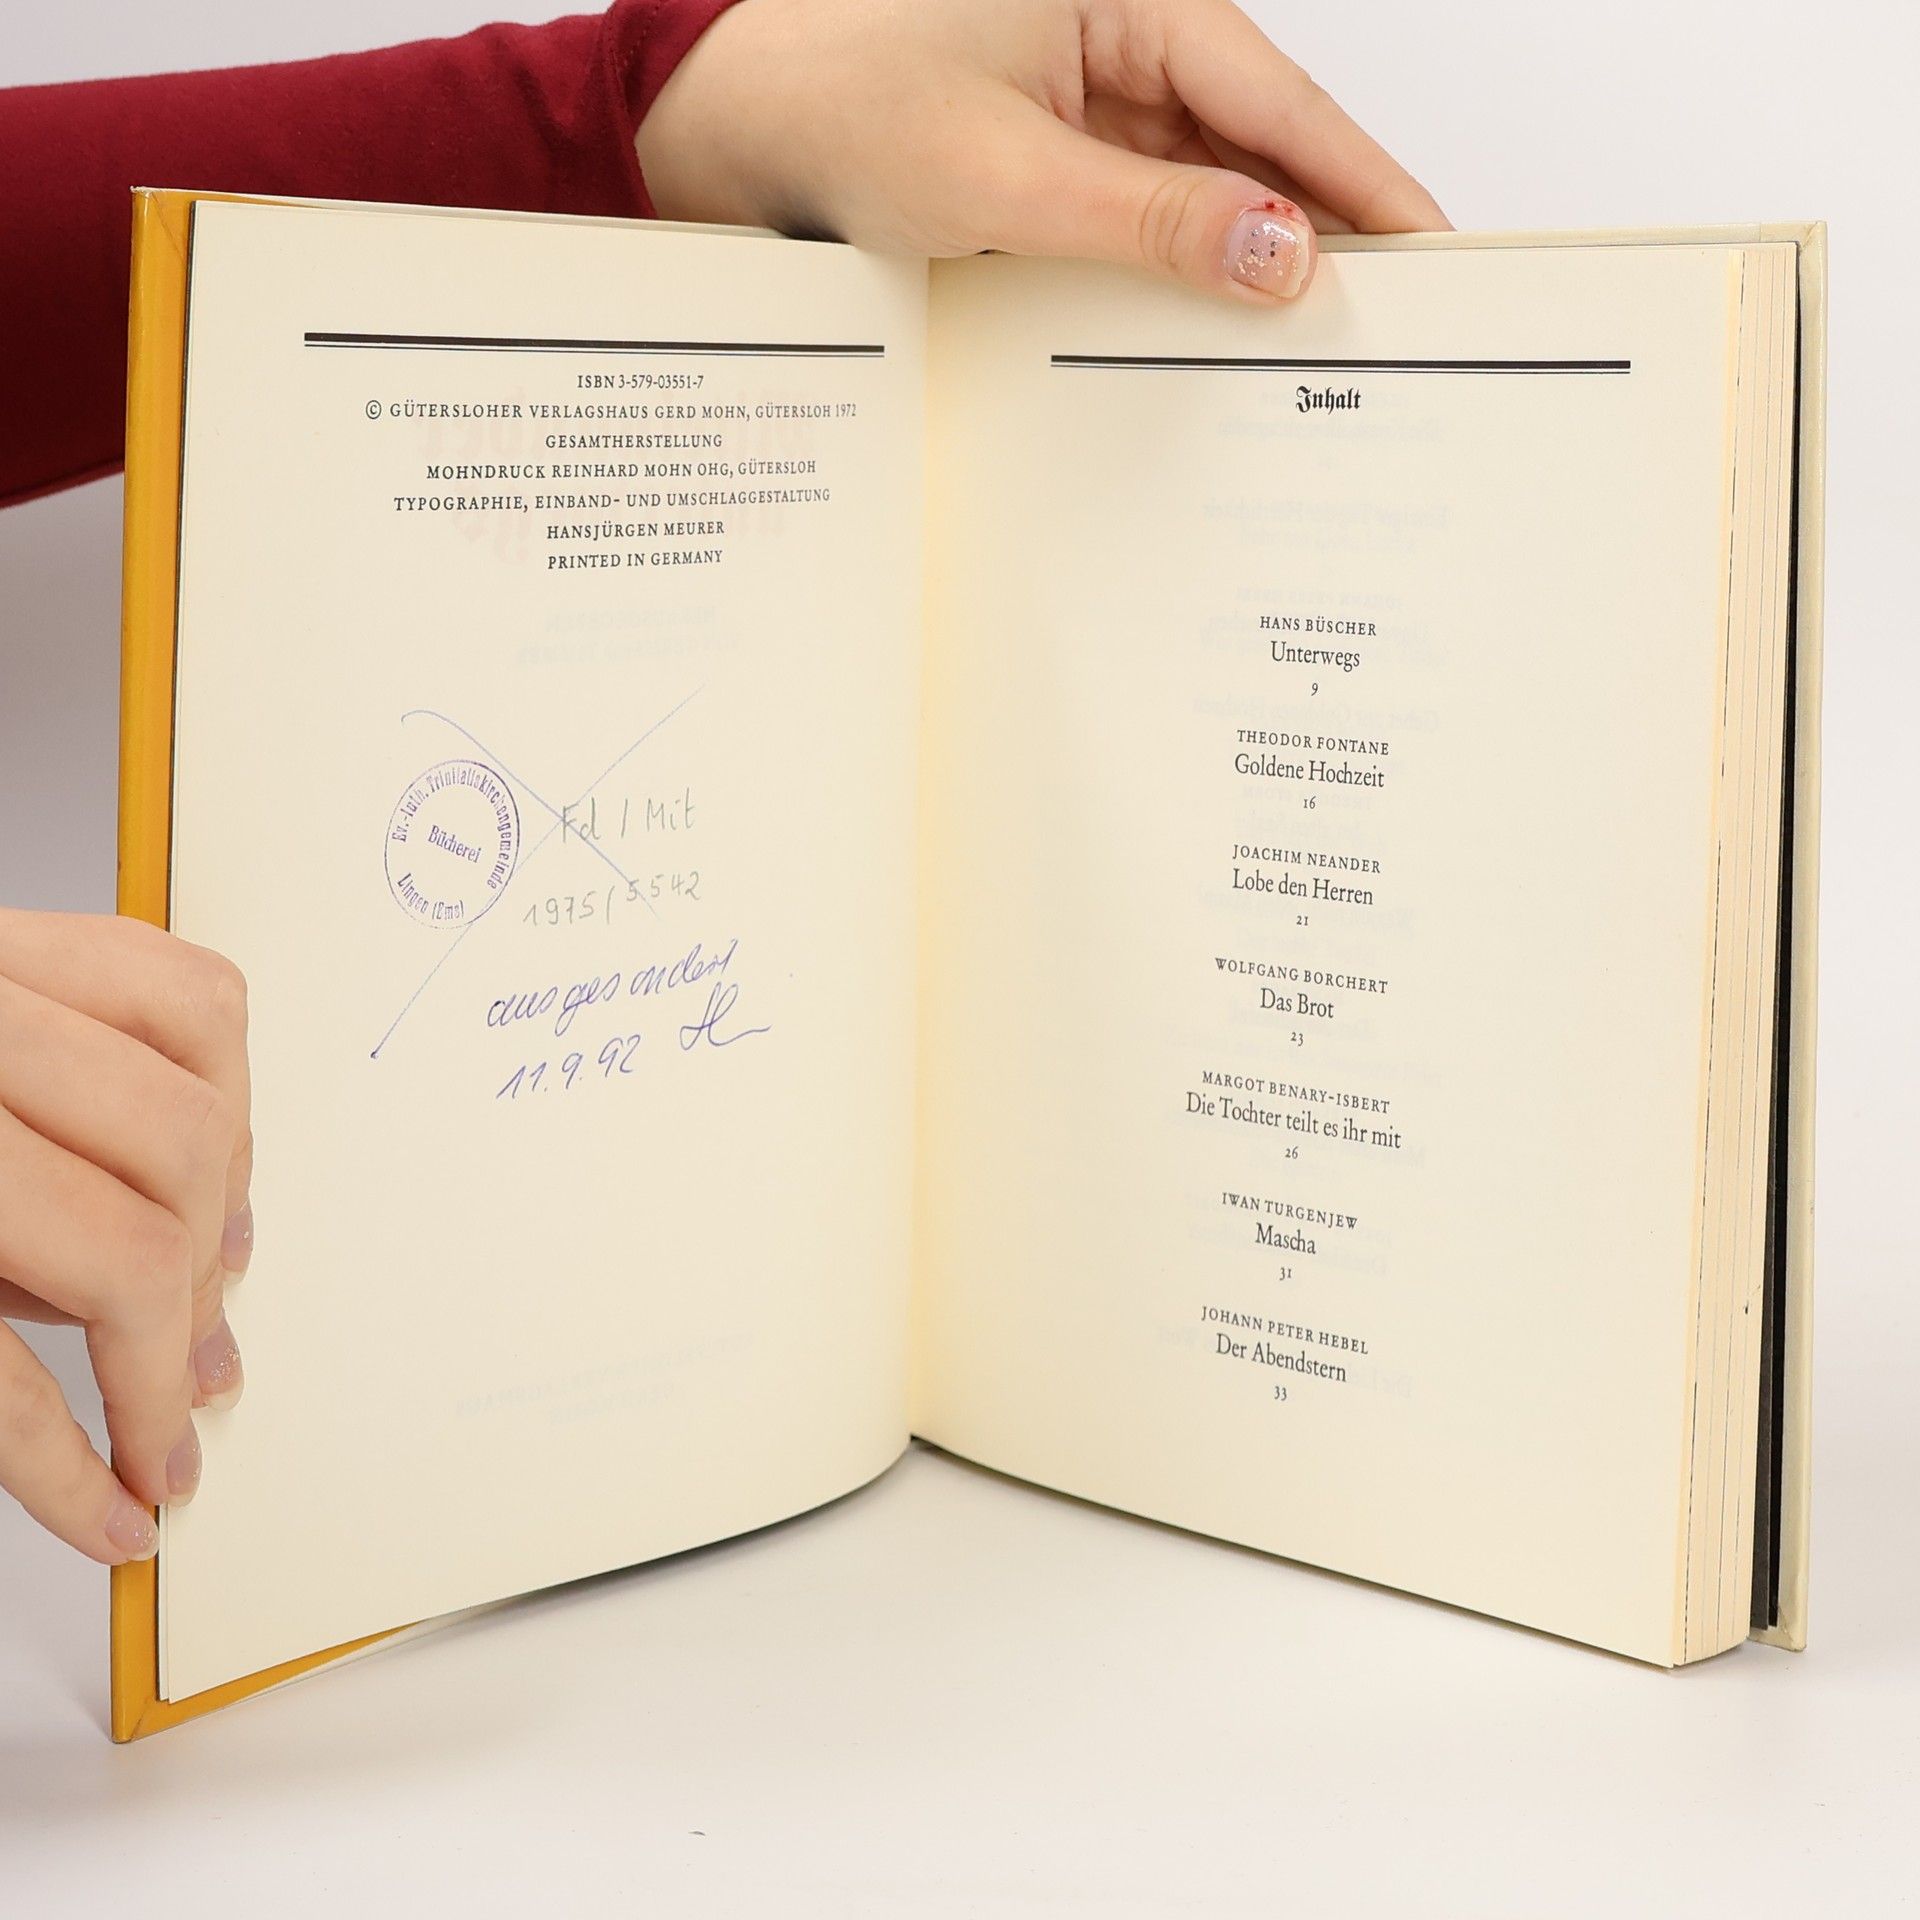 ISBN 3-579-03551-7
© GÜTERSLOHER VERLAGSHAUS GERD MOHN, GÜTERSLOH 1972
GESAMTHERSTELLUNG
MOHNDRUCK REINHARD MOHN OHG, GÜTERSLOH
TYPOGRAPHIE, EINBAND- UND UMSCHLAGGESTALTUNG
HANSJÜRGEN MEURER
PRINTED IN GERMANY
Ev.-luth. Trinitatiskirchengemeinde
Bücherei
Lingen (Ems)
Fd / Mit
1975/5542
ausgesondert
11.9.92
Inhalt
HANS BÜSCHER
Unterwegs
9
THEODOR FONTANE
Goldene Hochzeit
16
JOACHIM NEANDER
Lobe den Herren
21
WOLFGANG BORCHERT
Das Brot
23
MARGOT BENARY-ISBERT
Die Tochter teilt es ihr mit
26
IWAN TURGENJEW
Mascha
31
JOHANN PETER HEBEL
Der Abendstern
33